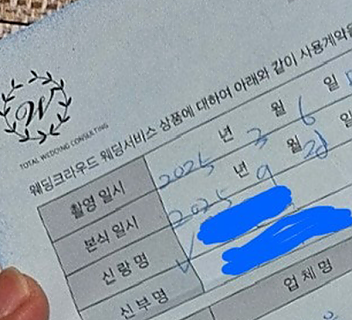 W
TOTAL WEDDING CONSULTING
웨딩크라우드 웨딩서비스 상품에 대하여 아래와 같이 사용계약을
촬영 일시 2025 년 3 월 6 일
본식 일시 2025 년 9 월 28 일
신랑 명
신부 명
업 체 명